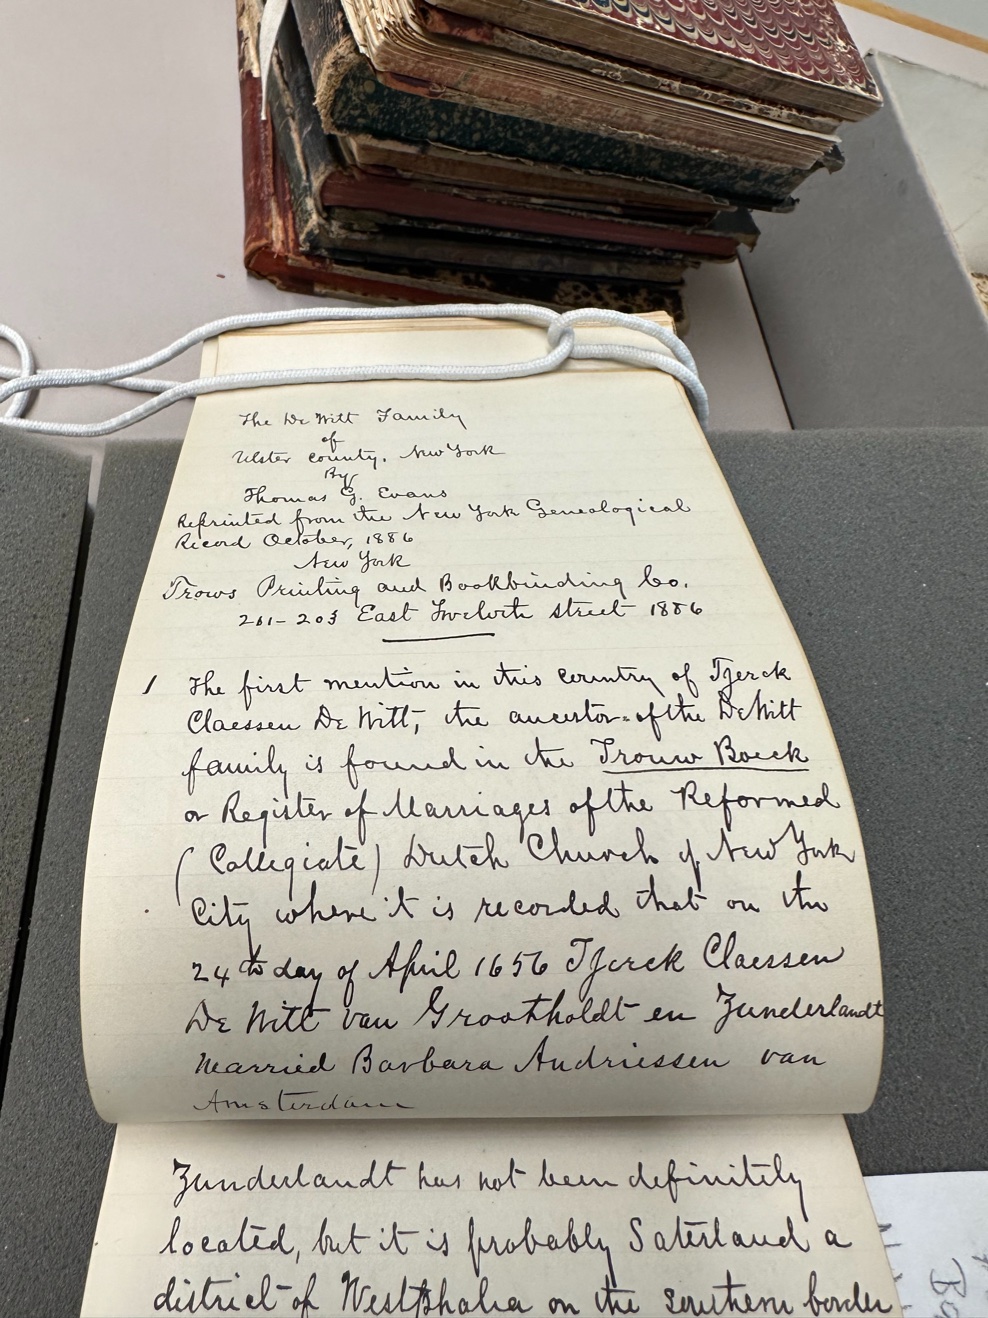 The De Witt Family
of
Ulster County, New York
By
Thomas G. Evans
Reprinted from the New York Genealogical
Record October, 1886
New York
Trows Printing and Bookbinding Co.
201-203 East Twelveth street 1886
1 The first mention in this country of Tjerck
Claessen De Witt, the ancestor of the De Witt
family is found in the Trouw Boeck
or Register of Marriages of the Reformed
(Collegiate) Dutch Church of New York
City where it is recorded that on the
24th day of April 1656 Tjerck Claessen
De Witt van Grootholdt en Zunderlandt
married Barbara Andriessen van
Amsterdam
Zunderlandt has not been definitely
located, but it is probably Saterland a
district of Westphalia on the southern border